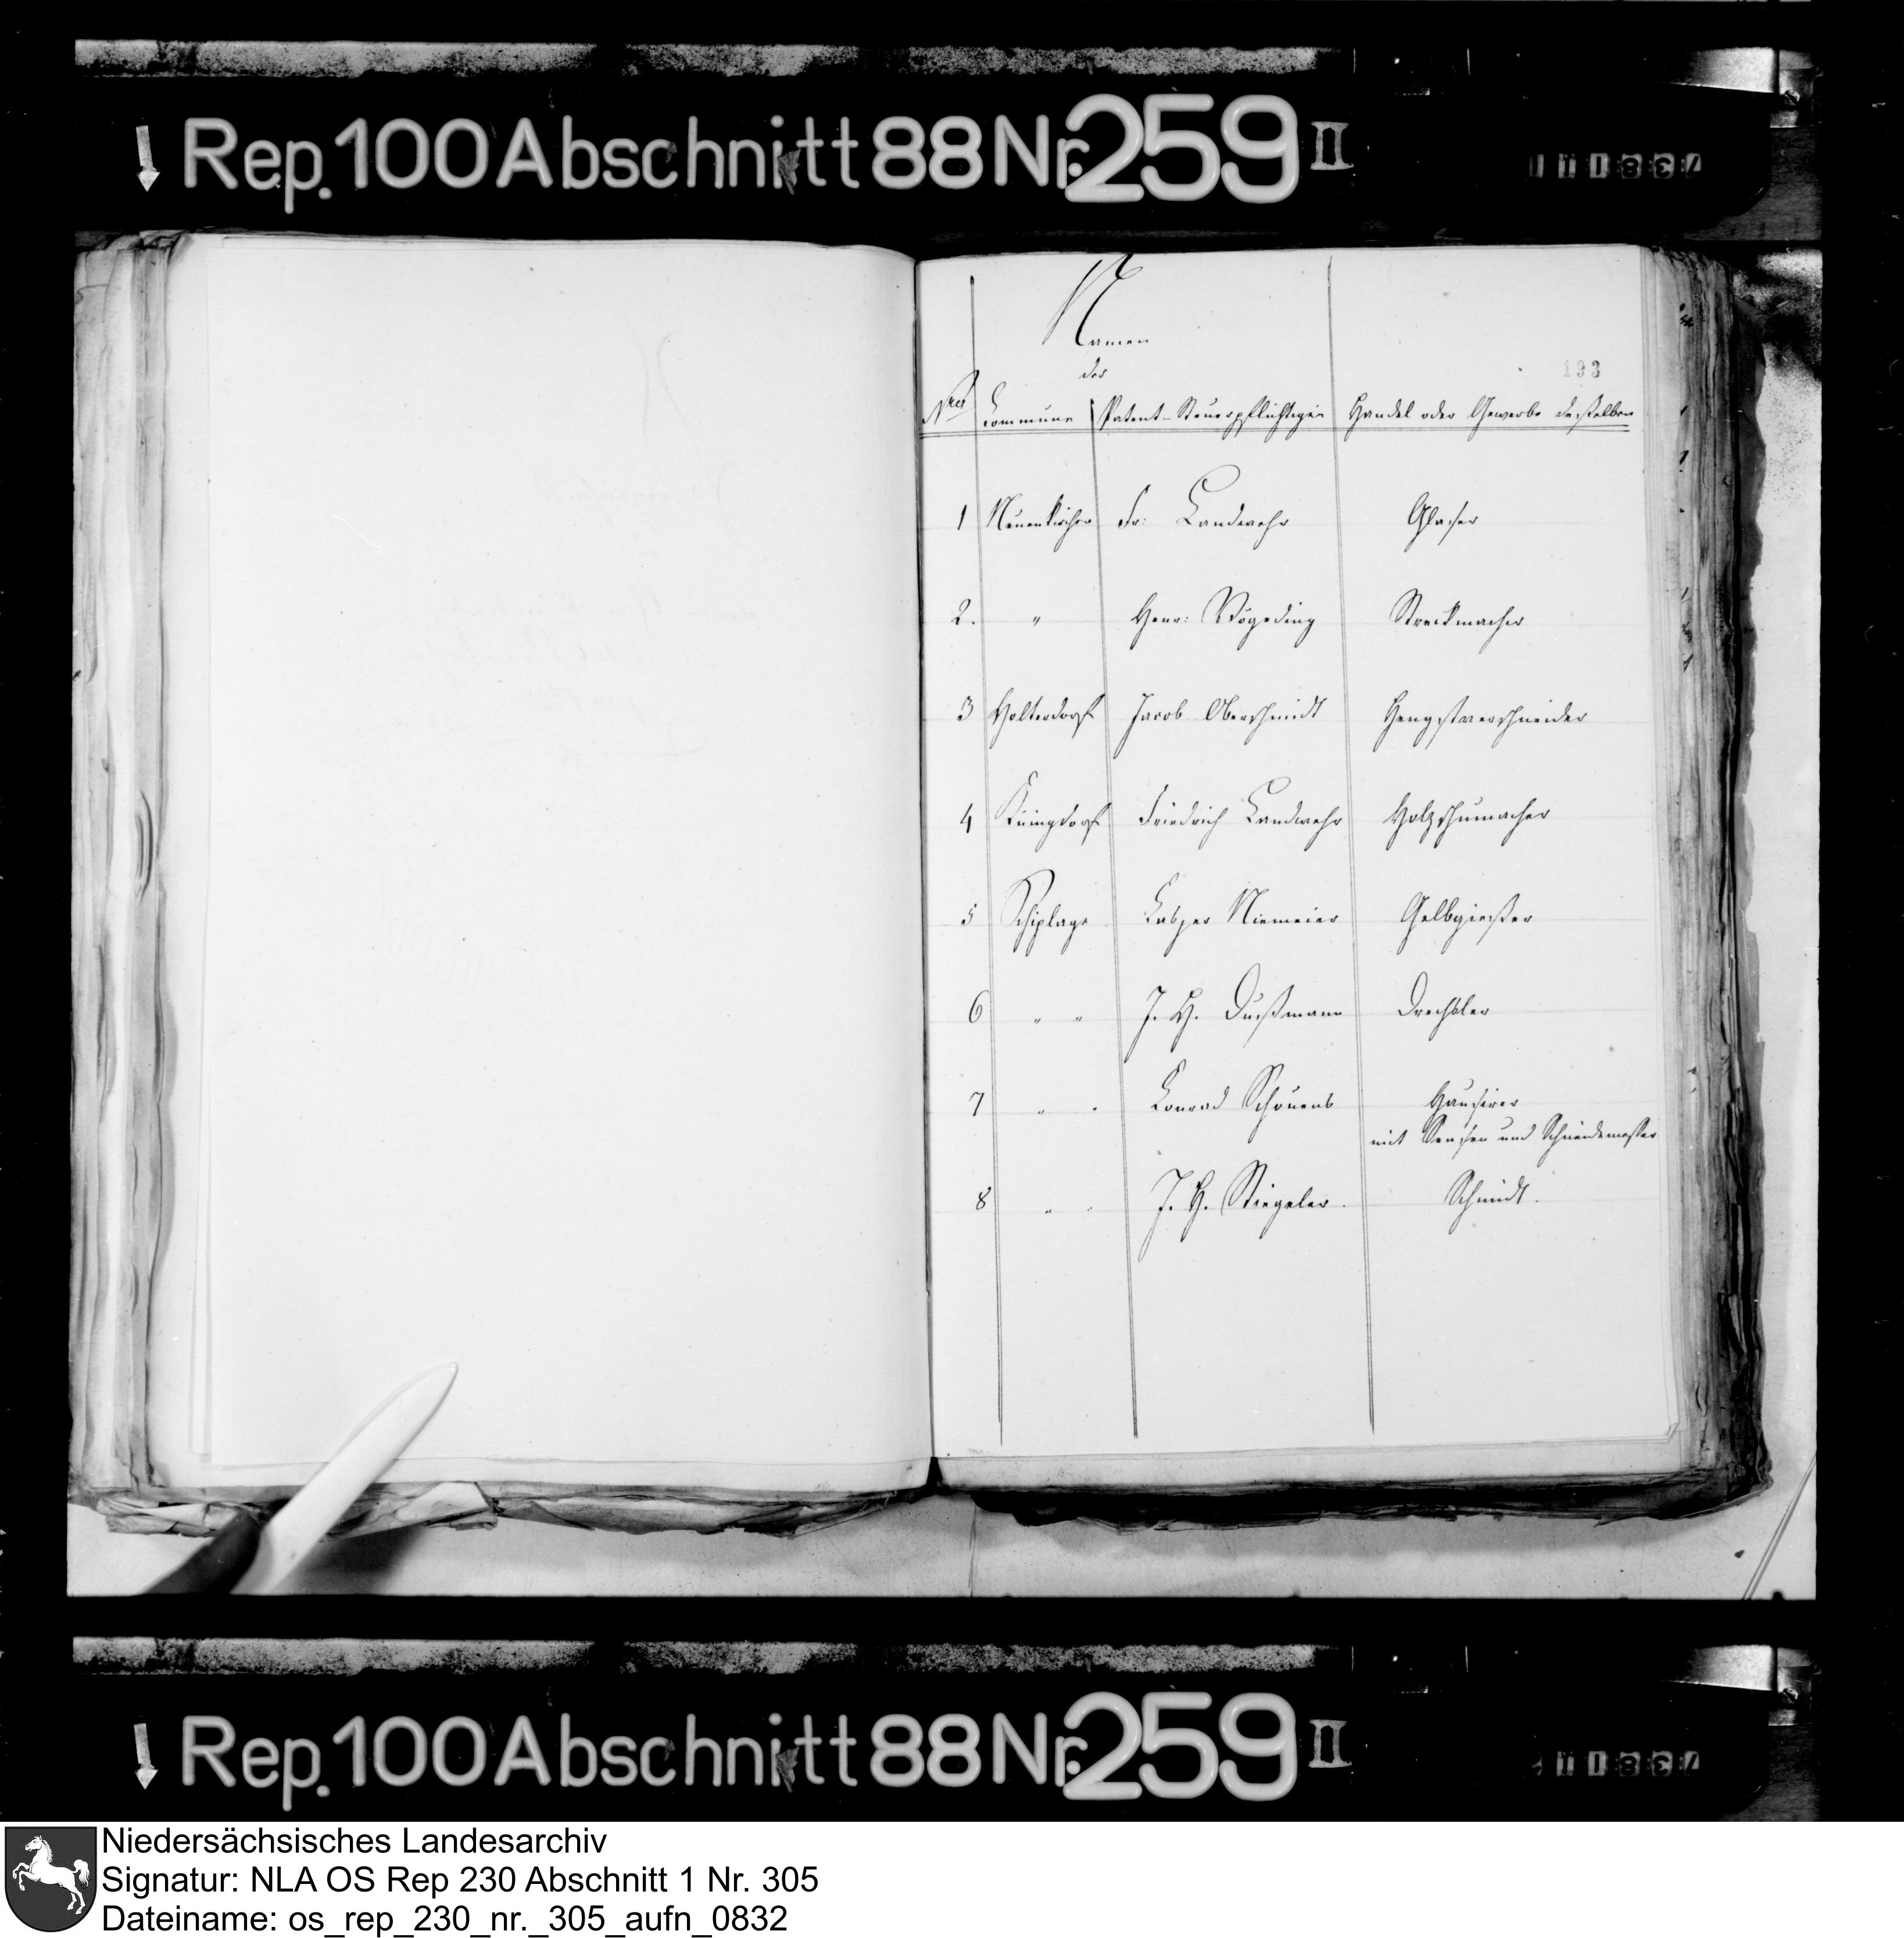 Rep. 100 Abschnitt 88 Nr. 259 II
Namen
193
der
Nro Commune Patent-Steuerpflichtigen Handel oder Gewerbe desselben
1 Neuenkirchen Fr: Landwehr Glaser
2. " Henr: Bögeding Streckmacher
3 Holterdorf Jacob Oberschmidt Hengstverschneider
4 Küingdorf Friedrich Landwehr Holzschumacher
5 Schiplage Casper Niemeier Gelbgiesser
6 " " J. H. Dussmann Drechsler
7 " " Conrad Schürens Hausirer
mit Sensen und Schneidemesser
8 " " J. H. Stiegeler. Schmidt.
Rep. 100 Abschnitt 88 Nr. 259 II
Niedersächsisches Landesarchiv
Signatur: NLA OS Rep 230 Abschnitt 1 Nr. 305
Dateiname: os_rep_230_nr._305_aufn_0832